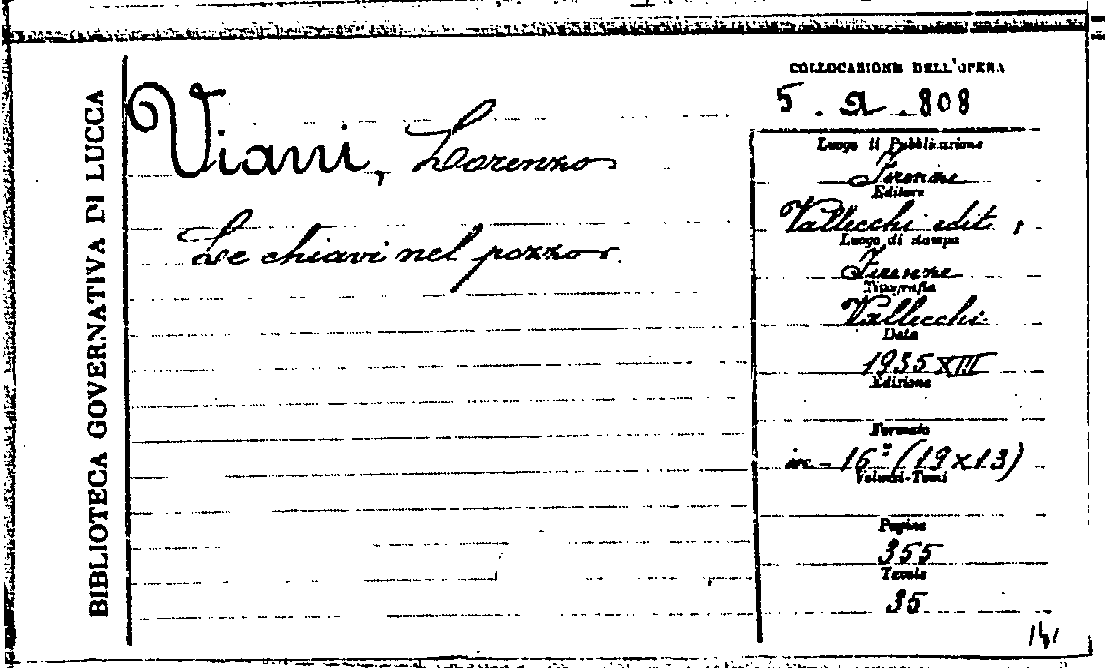 BIBLIOTECA GOVERNATIVA DI LUCCA
Viani, Lorenzo
Le chiavi nel pozzo.
COLLOCAZIONE DELL'OPERA
5. A. 808
Luogo di Pubblicazione
Firenze
Editore
Vallecchi edit.
Luogo di stampa
Firenze
Tipografia
Vallecchi.
Data
1935 XIII
Edizione
Formato
in-16° (19x13)
Volumi-Tomi
Pagine
355
Tavole
35